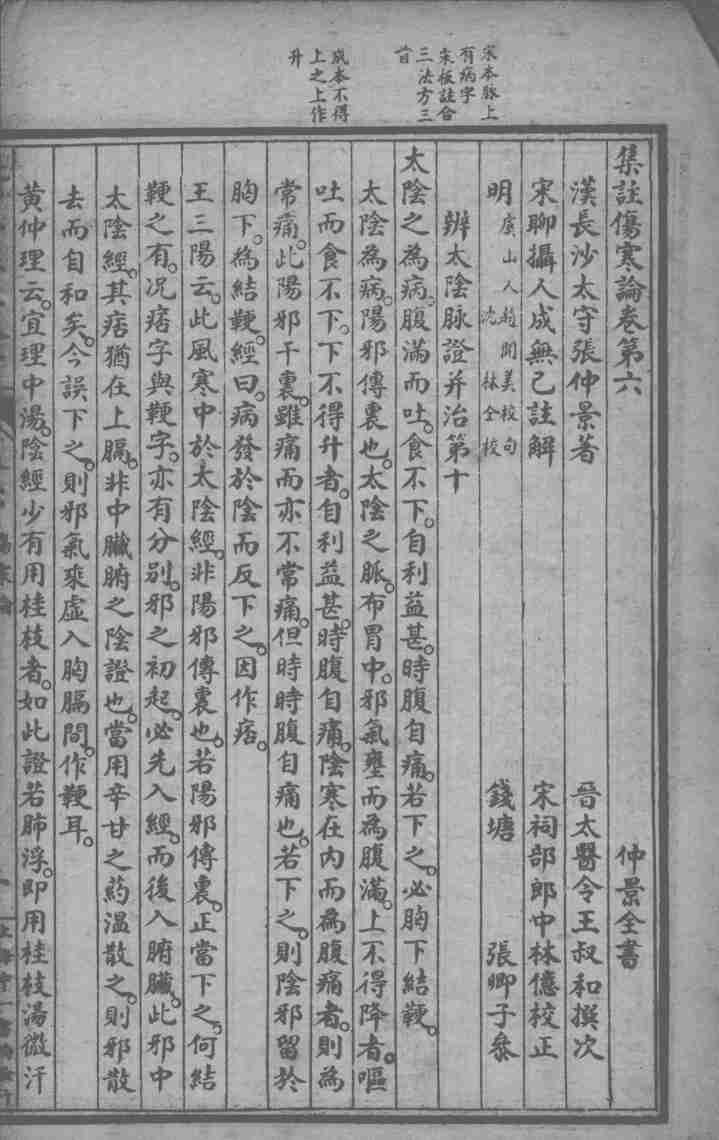 宋本脉上
有病字
宋板註合
三法方三
首
成本不得
上之上作
升
集註傷寒論卷第六
仲景全書
漢長沙太守張仲景著
晉太醫令王叔和撰次
宋聊攝人成無己註解
宋祠部郎中林億校正
明
虞山人趙開美校句
沈 林全校
錢塘 張卿子叅
辨太陰脉證并治第十
太陰之為病。腹滿而吐。食不下。自利益甚。時腹自痛。若下之。必胸下結鞕。
太陰為病。陽邪傳裏也。太陰之脈。布胃中。邪氣壅而為腹滿。上不得降者。嘔
吐而食不下。下不得升者。自利益甚。時腹自痛。陰寒在內而為腹痛者。則為
常痛。此陽邪干裏。雖痛而亦不常痛。但時時腹自痛也。若下之。則陰邪留於
胸下。為結鞕。經曰。病發於陰而反下之。因作痞。
王三陽云。此風寒中於太陰經。非陽邪傳裏也。若陽邪傳裏。正當下之。何結
鞕之有。况痞字與鞕字。亦有分别。邪之初起。必先入經。而後入腑臟。此邪中
太陰經。其痞猶在上膈。非中臟腑之陰證也。當用辛甘之葯温散之。則邪散
去而自和矣。今誤下之。則邪氣乘虛入胸膈間。作鞕耳。
黄仲理云。宜理中湯。陰經少有用桂枝者。如此證若肺浮。即用桂枝湯微汗